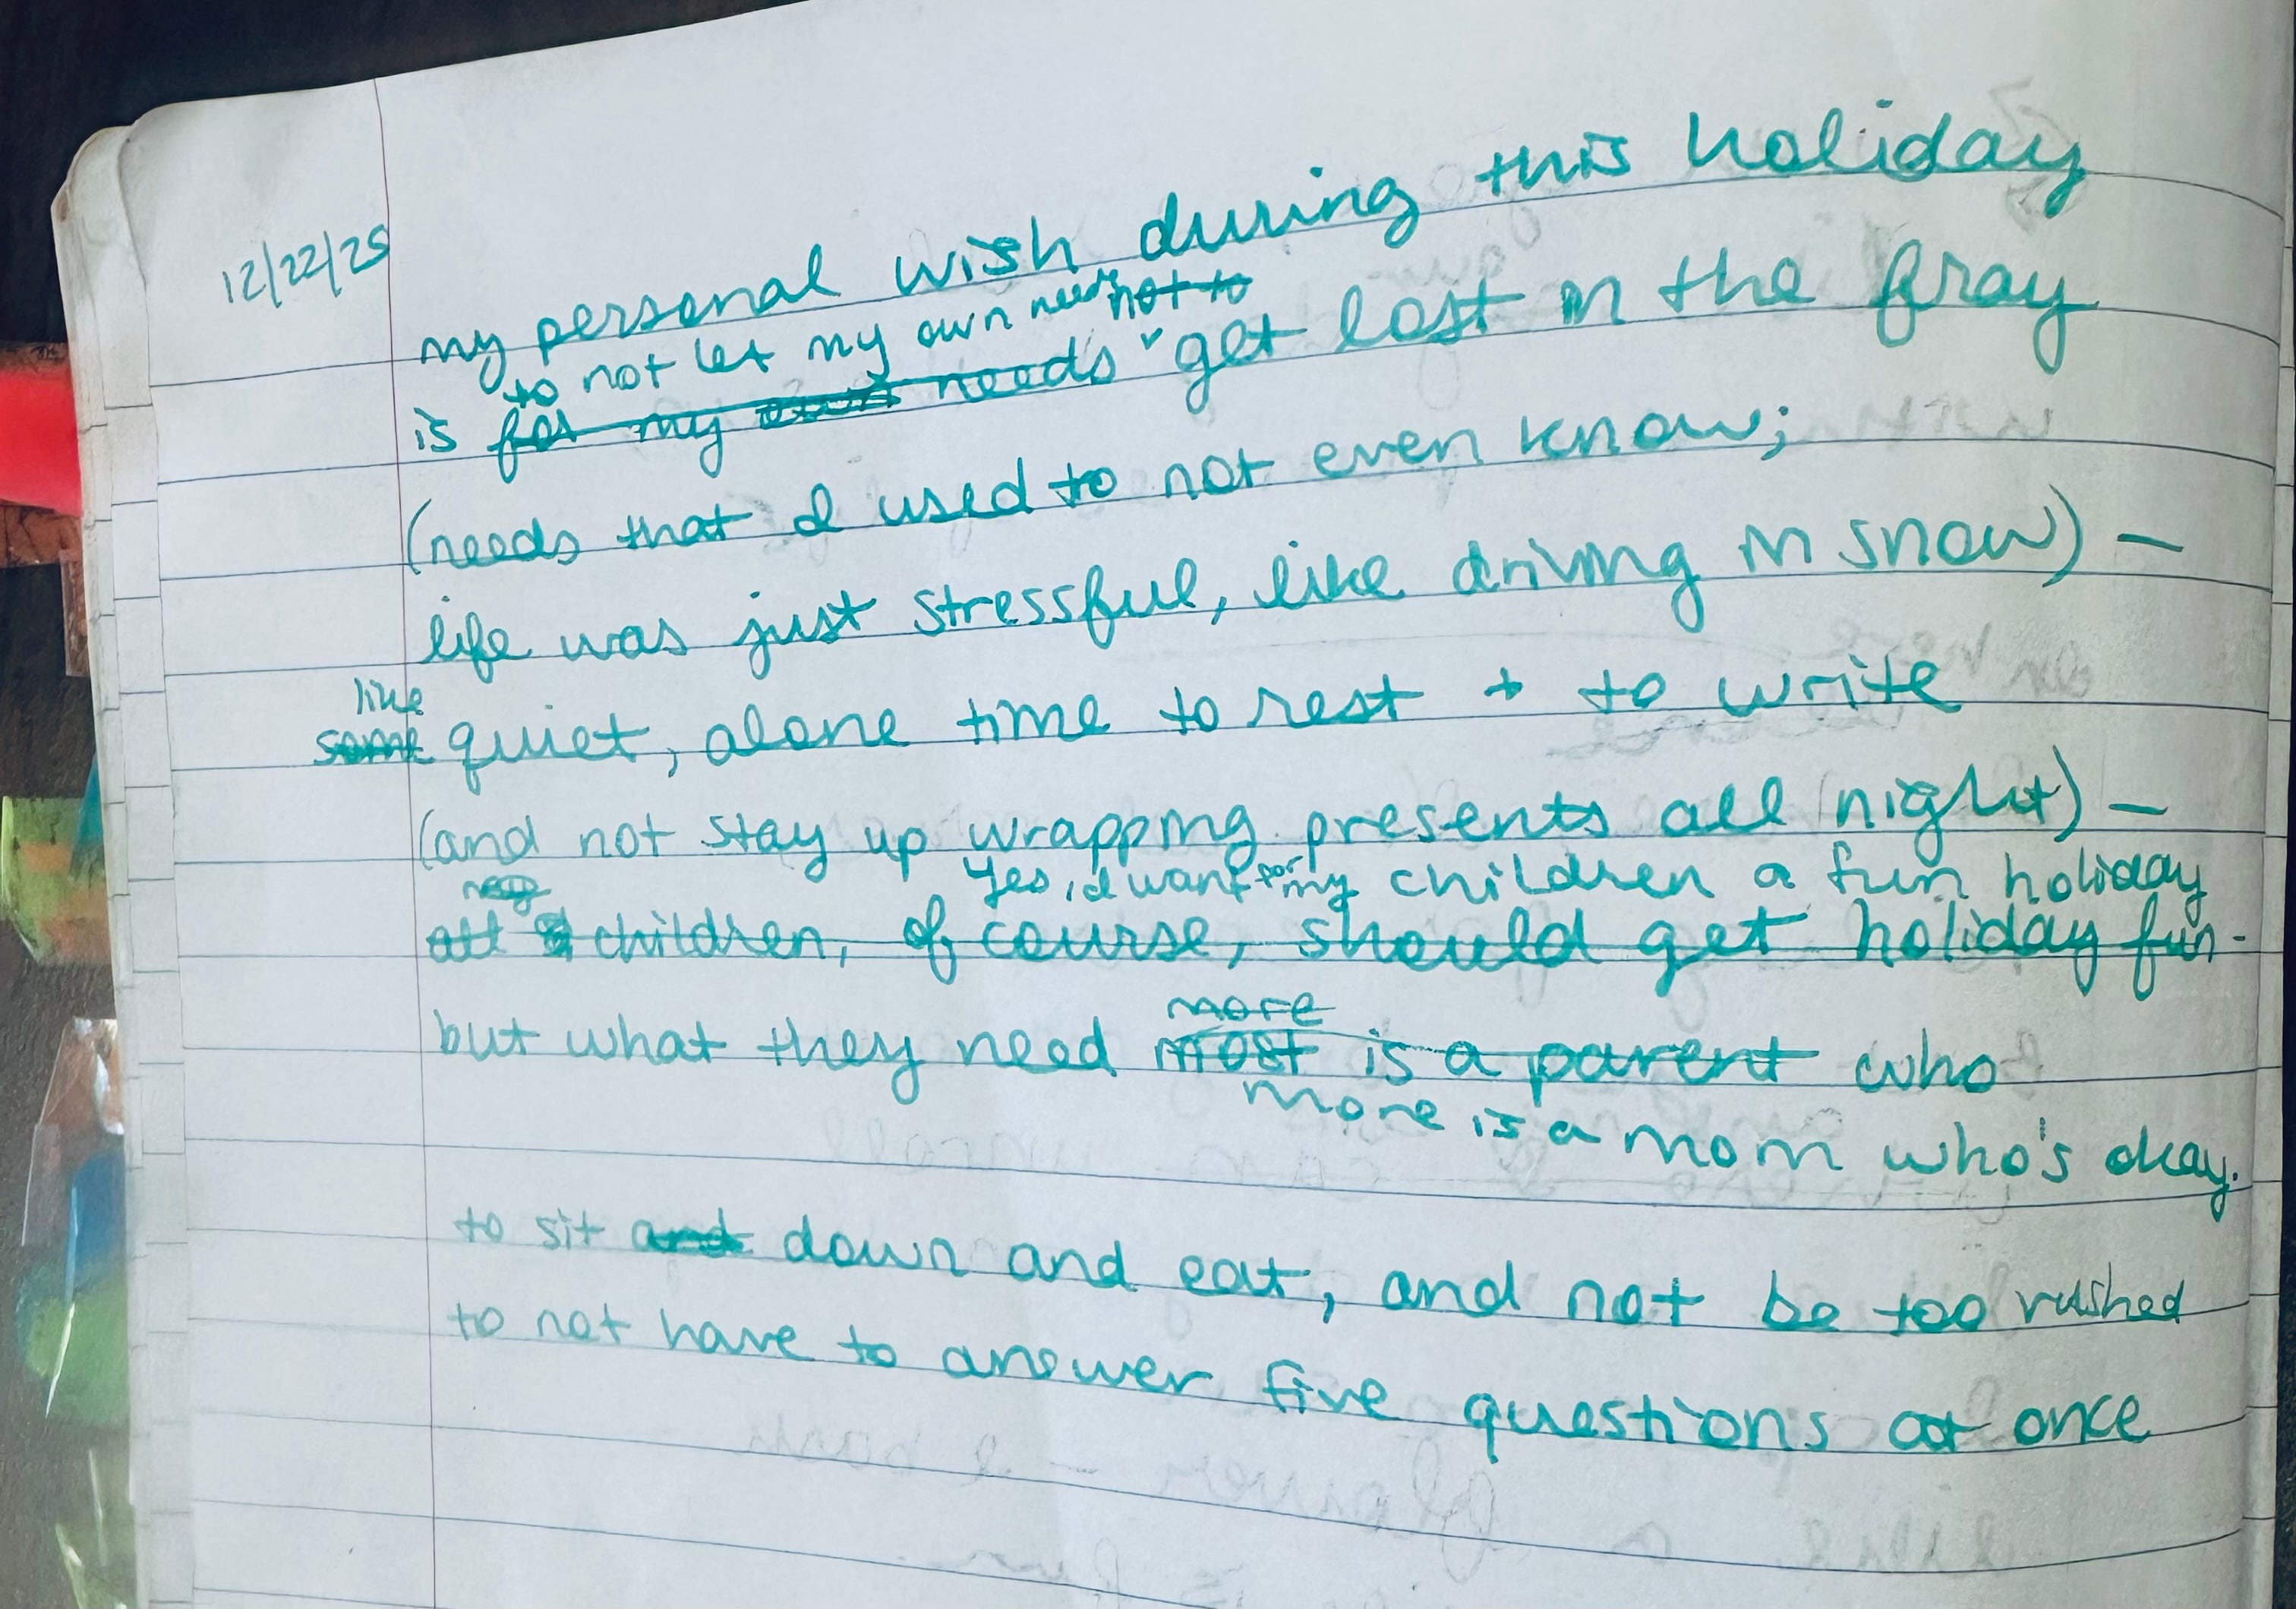 12/22/25
my personal wish during this holiday
to not let my own needs not to
is for my own needs get lost in the fray
(needs that I used to not even know;
life was just stressful, like driving in snow) —
like
some quiet, alone time to rest + to write
(and not stay up wrapping presents all night) —
Yes, I want for my children a fun holiday
all children, of course, should get holiday fun -
more
but what they need most is a parent who
more is a mom who's okay.
to sit and down and eat, and not be too rushed
to not have to answer five questions at once